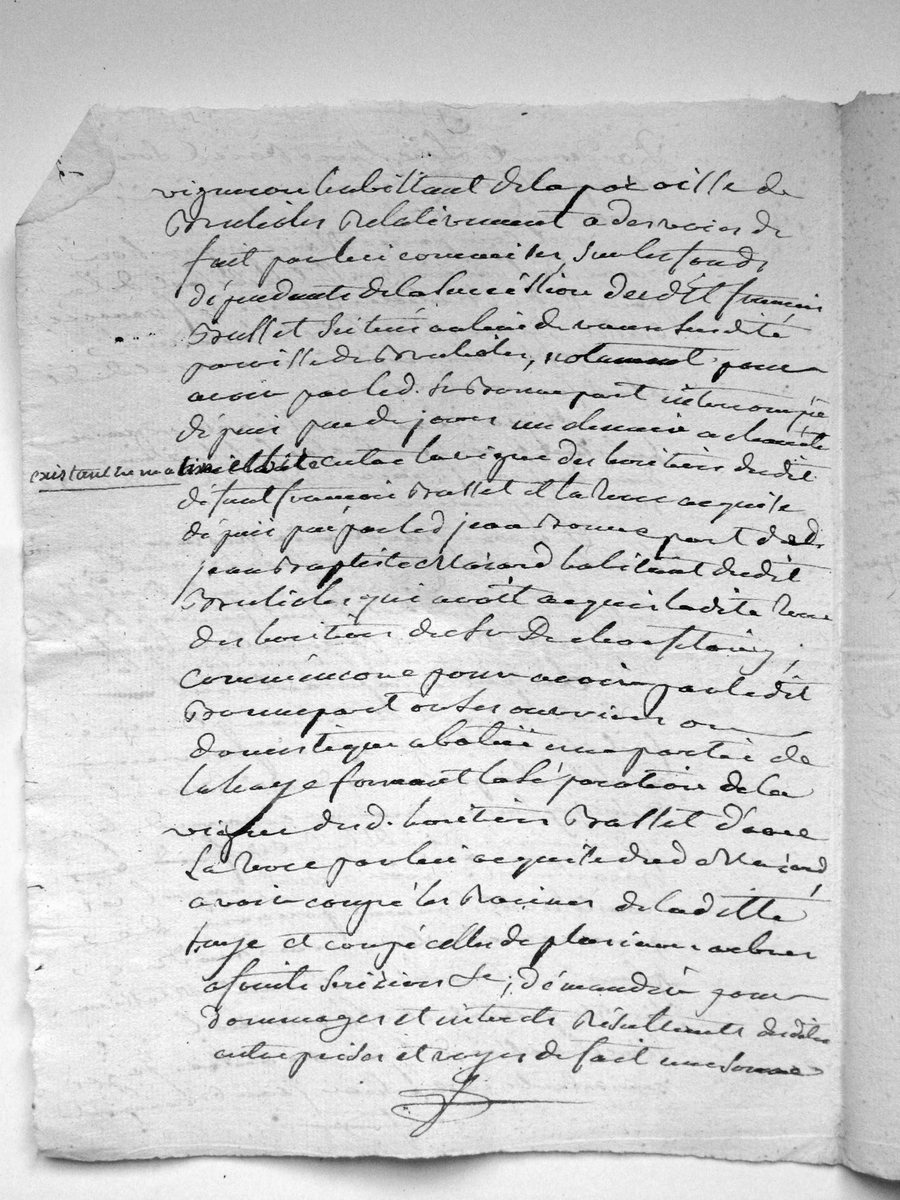 vigneron habittant de la paroisse de
Brulioles Relativement a des voies de
fait par lui commises, sur les fonds
dépendants de la succéssion dudit françois
Brasset scitués au lieu de susdite
paroisse de Brulioles, notamment pour
avoir par led. Sr Bonnepart interrompu
dépuis peu de jours un chemin a charette
existant en ma
entre la vigne des heritiers dudit
défunt françois Brasset et la terre acquise
dépuis peu par led jean Bonnepart dud
jean Baptiste habitant dudit
Brulioles qui avoit acquis ladite terre
des heritiers du Sr De ;
comm'encore pour avoir par ledit
Bonnepart ou ses ouvriers ou
domestiques abattu une partie de
la haye formant la séparation de la
vigne desd. heritiers Brasset d'avec
la terre par lui acquise dud
avoir coupé les Racines de laditte
haye et coupé celles de plusieurs arbres
a fruits serisiers &c ; démander pour
dommages et interets Résultants desdites
entreprises et voyes de fait une somme